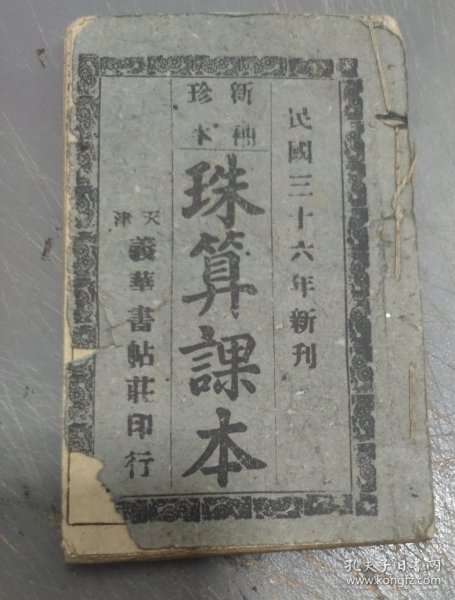 民國三十六年新刊
新袖
珍本
珠算課本
天津
義華書帖莊印行
孔夫子旧书网
www.kongfz.com